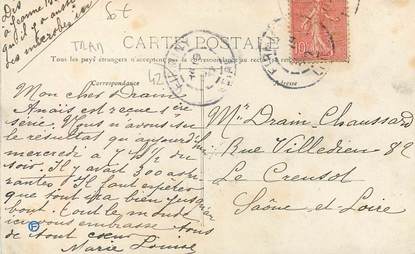 Dis
à Jeanne
qu'il y a
les microbes
St
TRAM
42
CARTE POSTALE
Tous les pays étrangers n'acceptent pas la correspondance au recto
Correspondance
Adresse
10
Mon cher Drain
Anaïs est reçue 1ère
série. Nous n'avons su
le résultat qu'aujourd'hui
mercredi à 7h 1/2 du
soir. Il y avait 300 aspi
rantes. Il faut espérer
que tout ira bien jusqu'au
bout. Tout le monde
ici vous embrasse tous
de tout cœur
Marie Louise
Mr Drain Chaussard
Rue Villedieu 82
Le Creusot
Saône-et-Loire